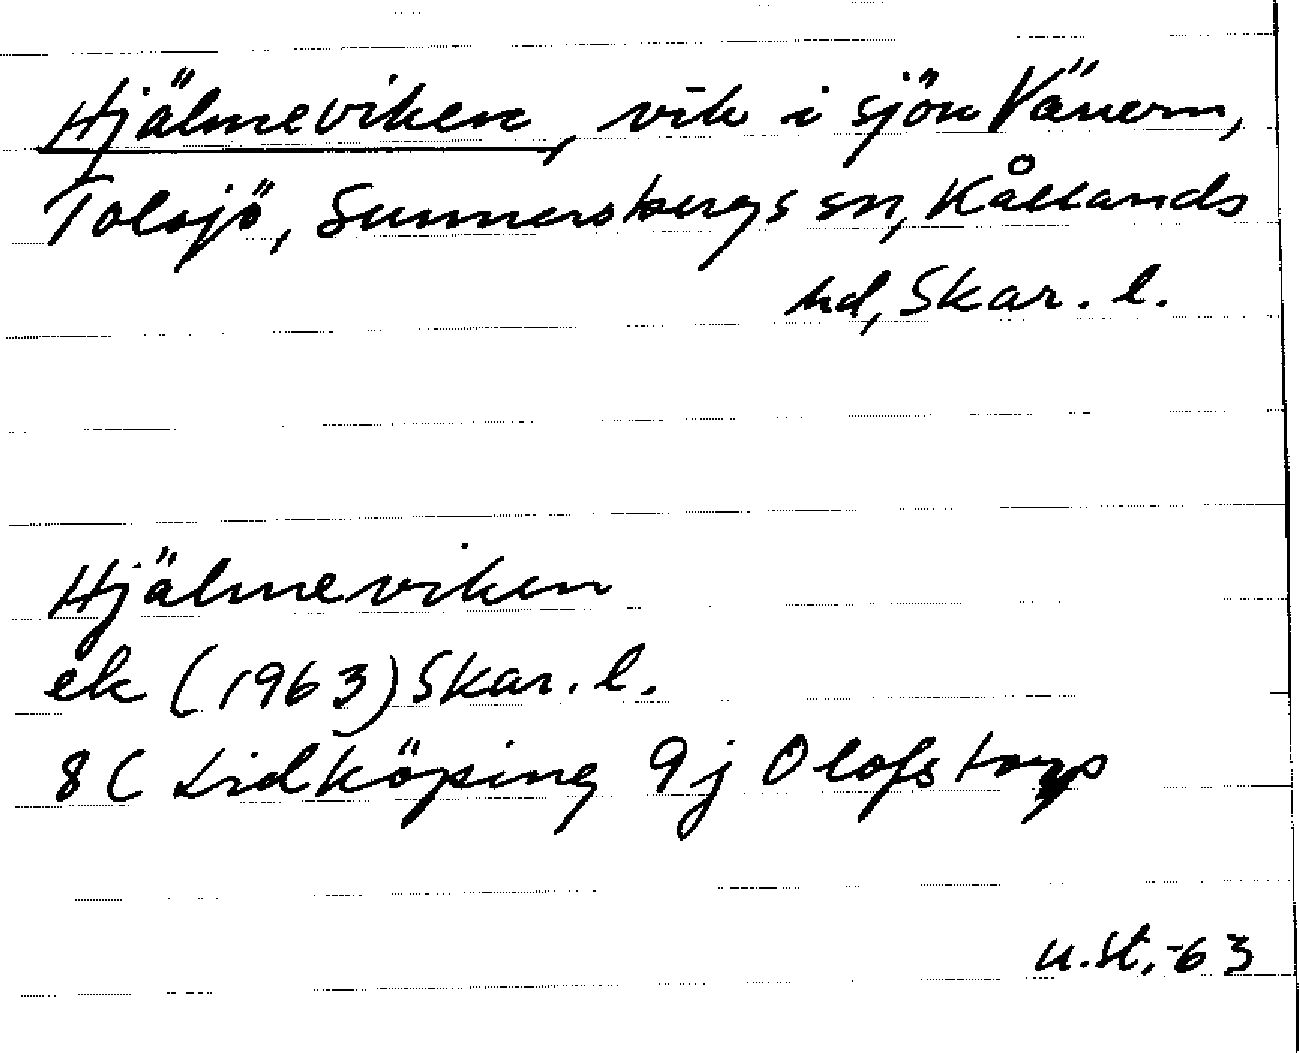 Hjälmeviken, vik i sjön Vänern,
Tolsjö, Sunnersbergs sn, Kållands
hd, Skar. l.
Hjälmeviken
ek (1963) Skar. l.
8C Lidköping 9j Olofstorp
u.st, -63